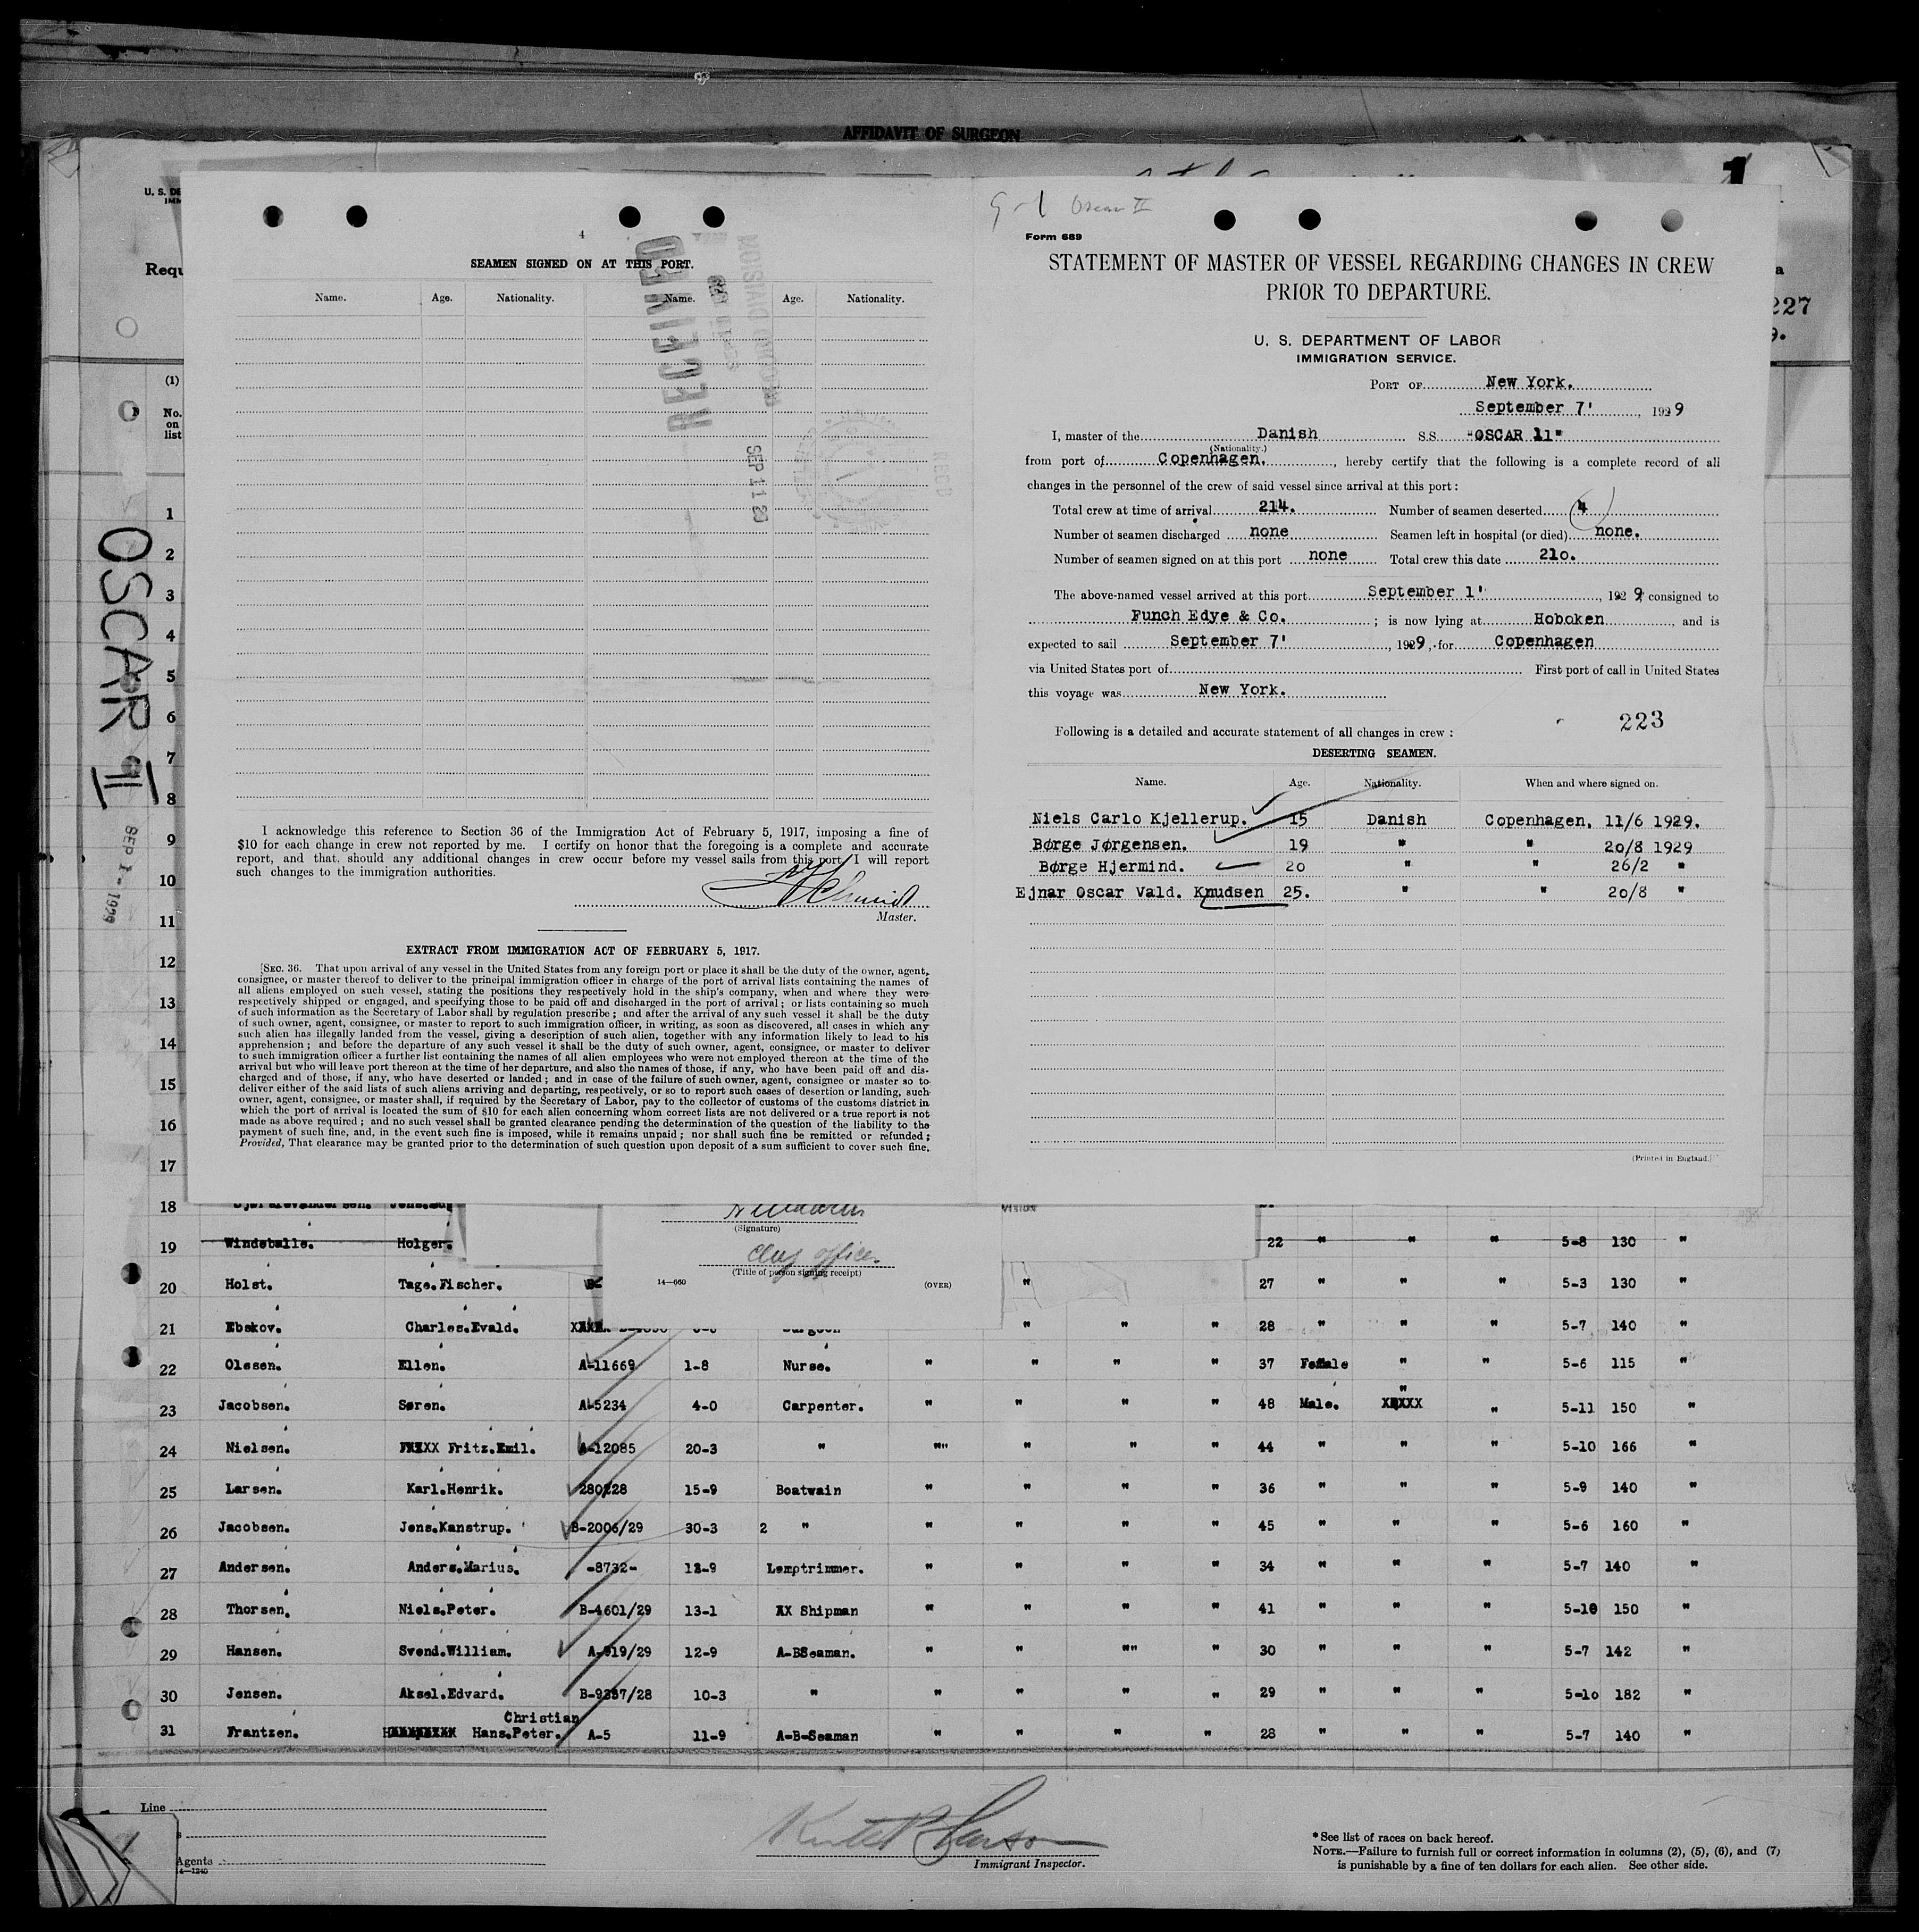 AFFIDAVIT OF SURGEON
1
U. S. DE
IMM
Requ
227
9.
(1)
No.
on
list
OSCAR II
SEP 1 - 1929
4
SEAMEN SIGNED ON AT THIS PORT.
Name. Age. Nationality. Name. Age. Nationality.
RECEIVED
SEP 11 29
RECD
I acknowledge this reference to Section 36 of the Immigration Act of February 5, 1917, imposing a fine of
$10 for each change in crew not reported by me. I certify on honor that the foregoing is a complete and accurate
report, and that should any additional changes in crew occur before my vessel sails from this port I will report
such changes to the immigration authorities.
Master.
EXTRACT FROM IMMIGRATION ACT OF FEBRUARY 5, 1917.
[SEC. 36. That upon arrival of any vessel in the United States from any foreign port or place it shall be the duty of the owner, agent,
consignee, or master thereof to deliver to the principal immigration officer in charge of the port of arrival lists containing the names of
all aliens employed on such vessel, stating the positions they respectively hold in the ship's company, when and where they were
respectively shipped or engaged, and specifying those to be paid off and discharged in the port of arrival; or lists containing so much
of such information as the Secretary of Labor shall by regulation prescribe; and after the arrival of any such vessel it shall be the duty
of such owner, agent, consignee, or master to report to such immigration officer, in writing, as soon as discovered, all cases in which any
such alien has illegally landed from the vessel, giving a description of such alien, together with any information likely to lead to his
apprehension; and before the departure of any such vessel it shall be the duty of such owner, agent, consignee, or master to deliver
to such immigration officer a further list containing the names of all alien employees who were not employed thereon at the time of the
arrival but who will leave port thereon at the time of her departure, and also the names of those, if any, who have been paid off and dis-
charged and of those, if any, who have deserted or landed; and in case of the failure of such owner, agent, consignee or master so to
deliver either of the said lists of such aliens arriving and departing, respectively, or so to report such cases of desertion or landing, such
owner, agent, consignee, or master shall, if required by the Secretary of Labor, pay to the collector of customs of the customs district in
which the port of arrival is located the sum of $10 for each alien concerning whom correct lists are not delivered or a true report is not
made as above required; and no such vessel shall be granted clearance pending the determination of the question of the liability to the
payment of such fine, and, in the event such fine is imposed, while it remains unpaid; nor shall such fine be remitted or refunded;
Provided, That clearance may be granted prior to the determination of such question upon deposit of a sum sufficient to cover such fine.
Oscar II
Form 689
STATEMENT OF MASTER OF VESSEL REGARDING CHANGES IN CREW
PRIOR TO DEPARTURE.
U. S. DEPARTMENT OF LABOR
IMMIGRATION SERVICE.
PORT OF New York.
September 7', 1929
I, master of the Danish S.S. "OSCAR 11"
(Nationality.)
from port of Copenhagen., hereby certify that the following is a complete record of all
changes in the personnel of the crew of said vessel since arrival at this port:
Total crew at time of arrival 214. Number of seamen deserted 4
Number of seamen discharged none Seamen left in hospital (or died) none.
Number of seamen signed on at this port none Total crew this date 210.
The above-named vessel arrived at this port September 1', 1929, consigned to
Funch Edye & Co.; is now lying at Hoboken, and is
expected to sail September 7', 1929, for Copenhagen
via United States port of First port of call in United States
this voyage was New York.
223
Following is a detailed and accurate statement of all changes in crew:
DESERTING SEAMEN.
Name. Age. Nationality. When and where signed on.
Niels Carlo Kjellerup. 15 Danish Copenhagen, 11/6 1929.
Børge Jørgensen. 19 " " 20/8 1929
Børge Hjermind. 20 " " 26/2 "
Ejnar Oscar Vald. Knudsen 25. " " 20/8 "
(Printed in England.)
1
2
3
4
5
6
7
8
9
10
11
12
13
14
15
16
17
18
(Signature)
(Title of person signing receipt)
14—660 (OVER)
19 Windeballe. Holger. 22 " " " 5-8 130 "
20 Holst. Tage.Fischer. " 27 " " " 5-3 130 "
21 Ebskov. Charles.Evald. Surgeon " " " 28 " " " 5-7 140 "
22 Olesen. Ellen. A-11669 1-8 Nurse. " " " " 37 Female " " 5-6 115 "
23 Jacobsen. Søren. A-5234 4-0 Carpenter. " " " " 48 Male. " XXXXX " 5-11 150 "
24 Nielsen. XXXXX Fritz.Emil. A-12085 20-3 " "" " " " 44 " " " 5-10 166 "
25 Larsen. Karl.Henrik. 280228 15-9 Boatwain " " " " 36 " " " 5-9 140 "
26 Jacobsen. Jens.Kanstrup. B-2006/29 30-3 2 " " " " " 45 " " " 5-6 160 "
27 Andersen. Anders.Marius. -8732- 12-9 Lamptrimmer. " " " " 34 " " " 5-7 140 "
28 Thorsen. Niels.Peter. B-4601/29 13-1 XX Shipman " " " " 41 " " " 5-10 150 "
29 Hansen. Svend.William. A-919/29 12-9 A-BSeaman. " " "" " 30 " " " 5-7 142 "
30 Jensen. Aksel.Edvard. B-9357/28 10-3 " " " " " 29 " " " 5-10 182 "
31 Frantzen. Hans.Peter. Christian A-5 11-9 A-B-Seaman " " " " 28 " " " 5-7 140 "
Line
Agents
14—1240
Immigrant Inspector.
* See list of races on back hereof.
NOTE.—Failure to furnish full or correct information in columns (2), (5), (6), and (7)
is punishable by a fine of ten dollars for each alien. See other side.